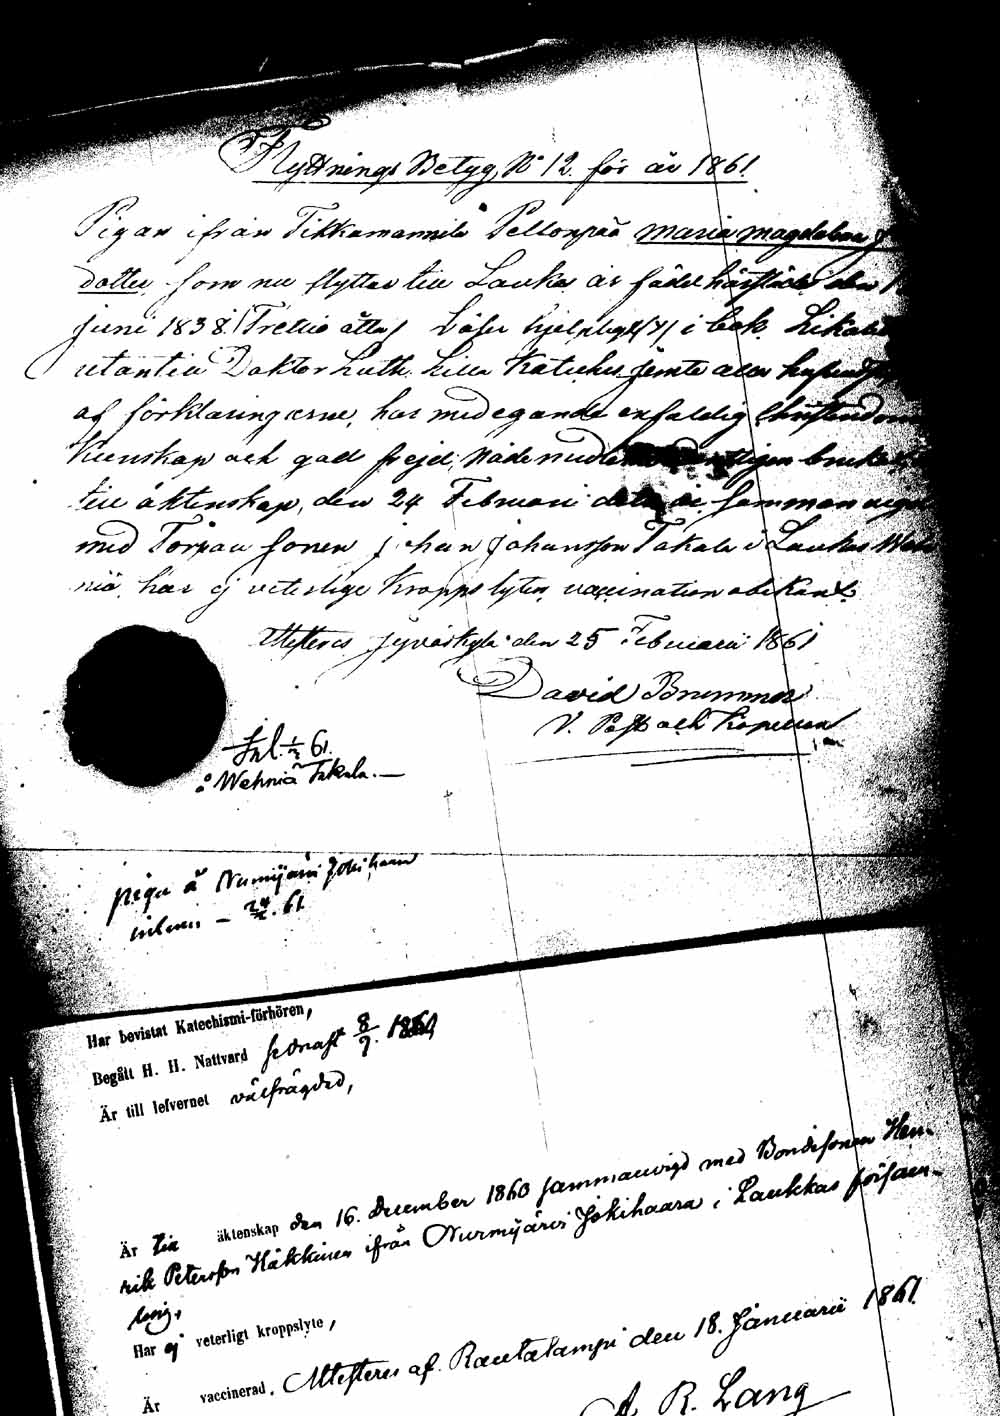 Flyttnings Betyg, No 12. för år 1861.
Pigan ifrån Tikkamannila Pellonpää Maria Magdalena
dotter som nu flyttar till Lauka är född härstädes den
Juni 1838. (Trettio åtta) Läser hjelpligt (7) i bok
utantill Doktor Luth. Lilla Kateches jemte
af förklaringarne, har medegande enfaldig Christendoms
Kunskap och god frejd, Nådemedlen
till äktenskap, den 24 Februari detta år Sammanvigd
med Torpare Sonen Johan Johansson Takala i Laukas
niä, har ej veterlige Kropps lyten, vaccination obekant.
Attesteras Jyväskylä den 25 Februarii 1861
David Brummer
V. Past. och Kapellan
Inl. 61.
å Wehniä Takala.
piga å Nurmijärvi Jokihaara
61.
Har bevistat Katechismi-förhören,
Begått H. H. Nattvard sednast 8/9.
Är till lefvernet välfrägdad,
Är till äktenskap den 16. December 1860 sammanvigd med Bondesonen Hen-
rik Petersson Häkkinen ifrån Nurmijärvi Jokihaara i Laukkas försam-
ling.
Har ej veterligt kroppslyte,
Är vaccinerad. Attesteras af Rautalampi den 18. Januarii 1861.
A. R. Lang